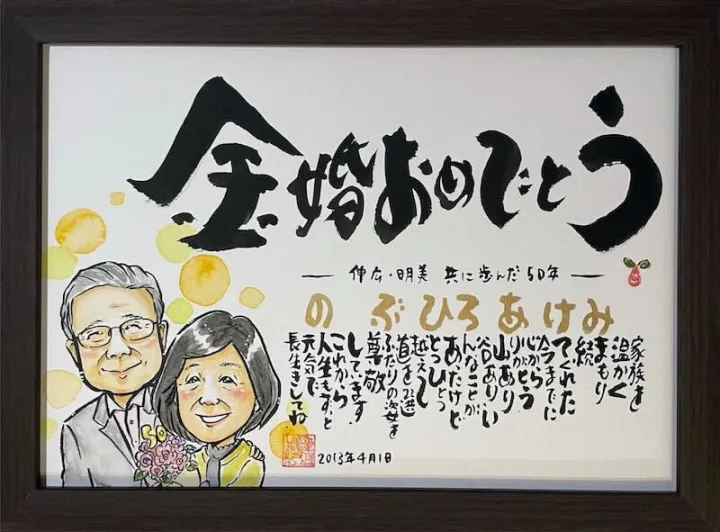 金婚おめでとう
伸広・明美 共に歩んだ50年
のぶひろあけみ
家族を
温かく
まもり
続
てくれた
今までに
心から
りがとう
山あり
谷ありい
んなことが
あったけど
とつひとつ
越えて
道を選
ふたりの姿を
尊敬
しています
これから
人生もずっと
元気で
長生きしてね
2013年4月1日
50